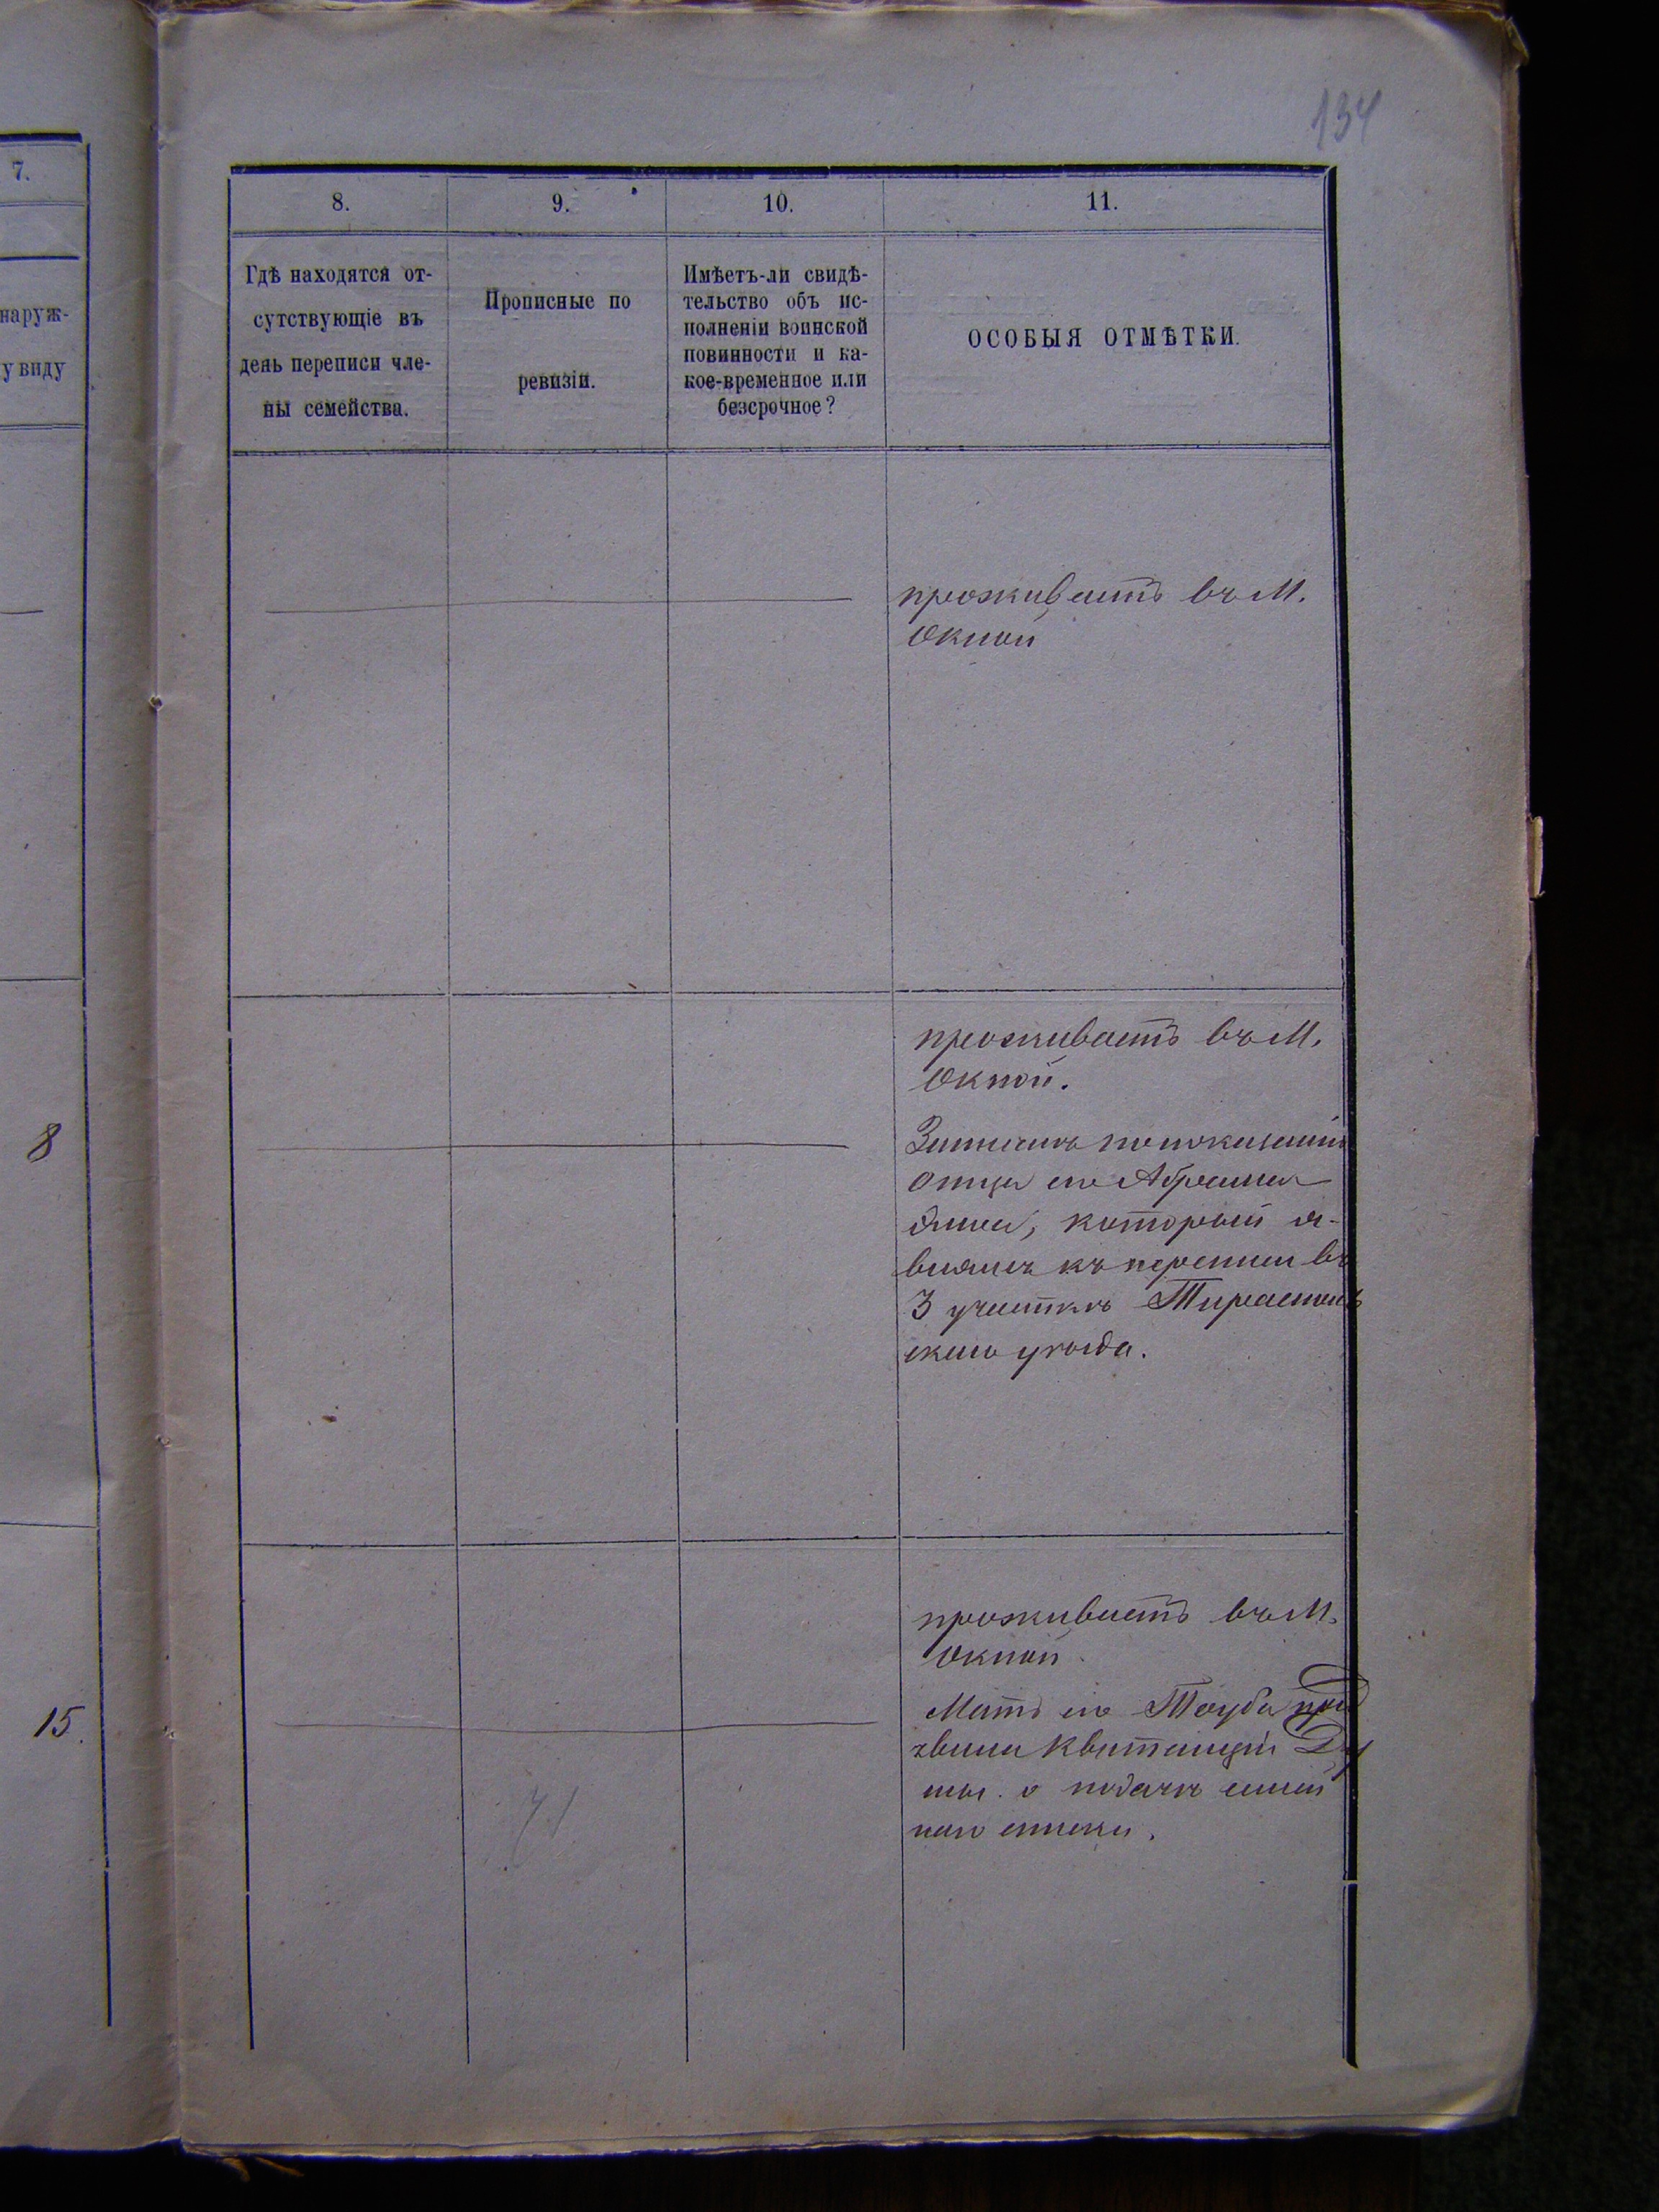 134
7.
наруж-
у виду
8
15.
8.
9.
10.
11.
Гдѣ находятся от-
сутствующіе въ
день переписи чле-
ны семейства.
Прописные по
ревизіи.
Имѣетъ-ли свидѣ-
тельство объ ис-
полненіи воинской
повинности и ка-
кое-временное или
безсрочное?
ОСОБЫЯ ОТМѢТКИ.
проживаетъ въ М.
Окной
проживаетъ въ М.
Окной.
Записанъ по показанію
отца его Абрама
который я-
вился къ переписи въ
3 участкѣ Тираспол
скаго уѣзда.
проживаетъ въ М.
Окной
Мать его Тауба пред
явила квитанцію Ду
мы о подачѣ
наго списка.